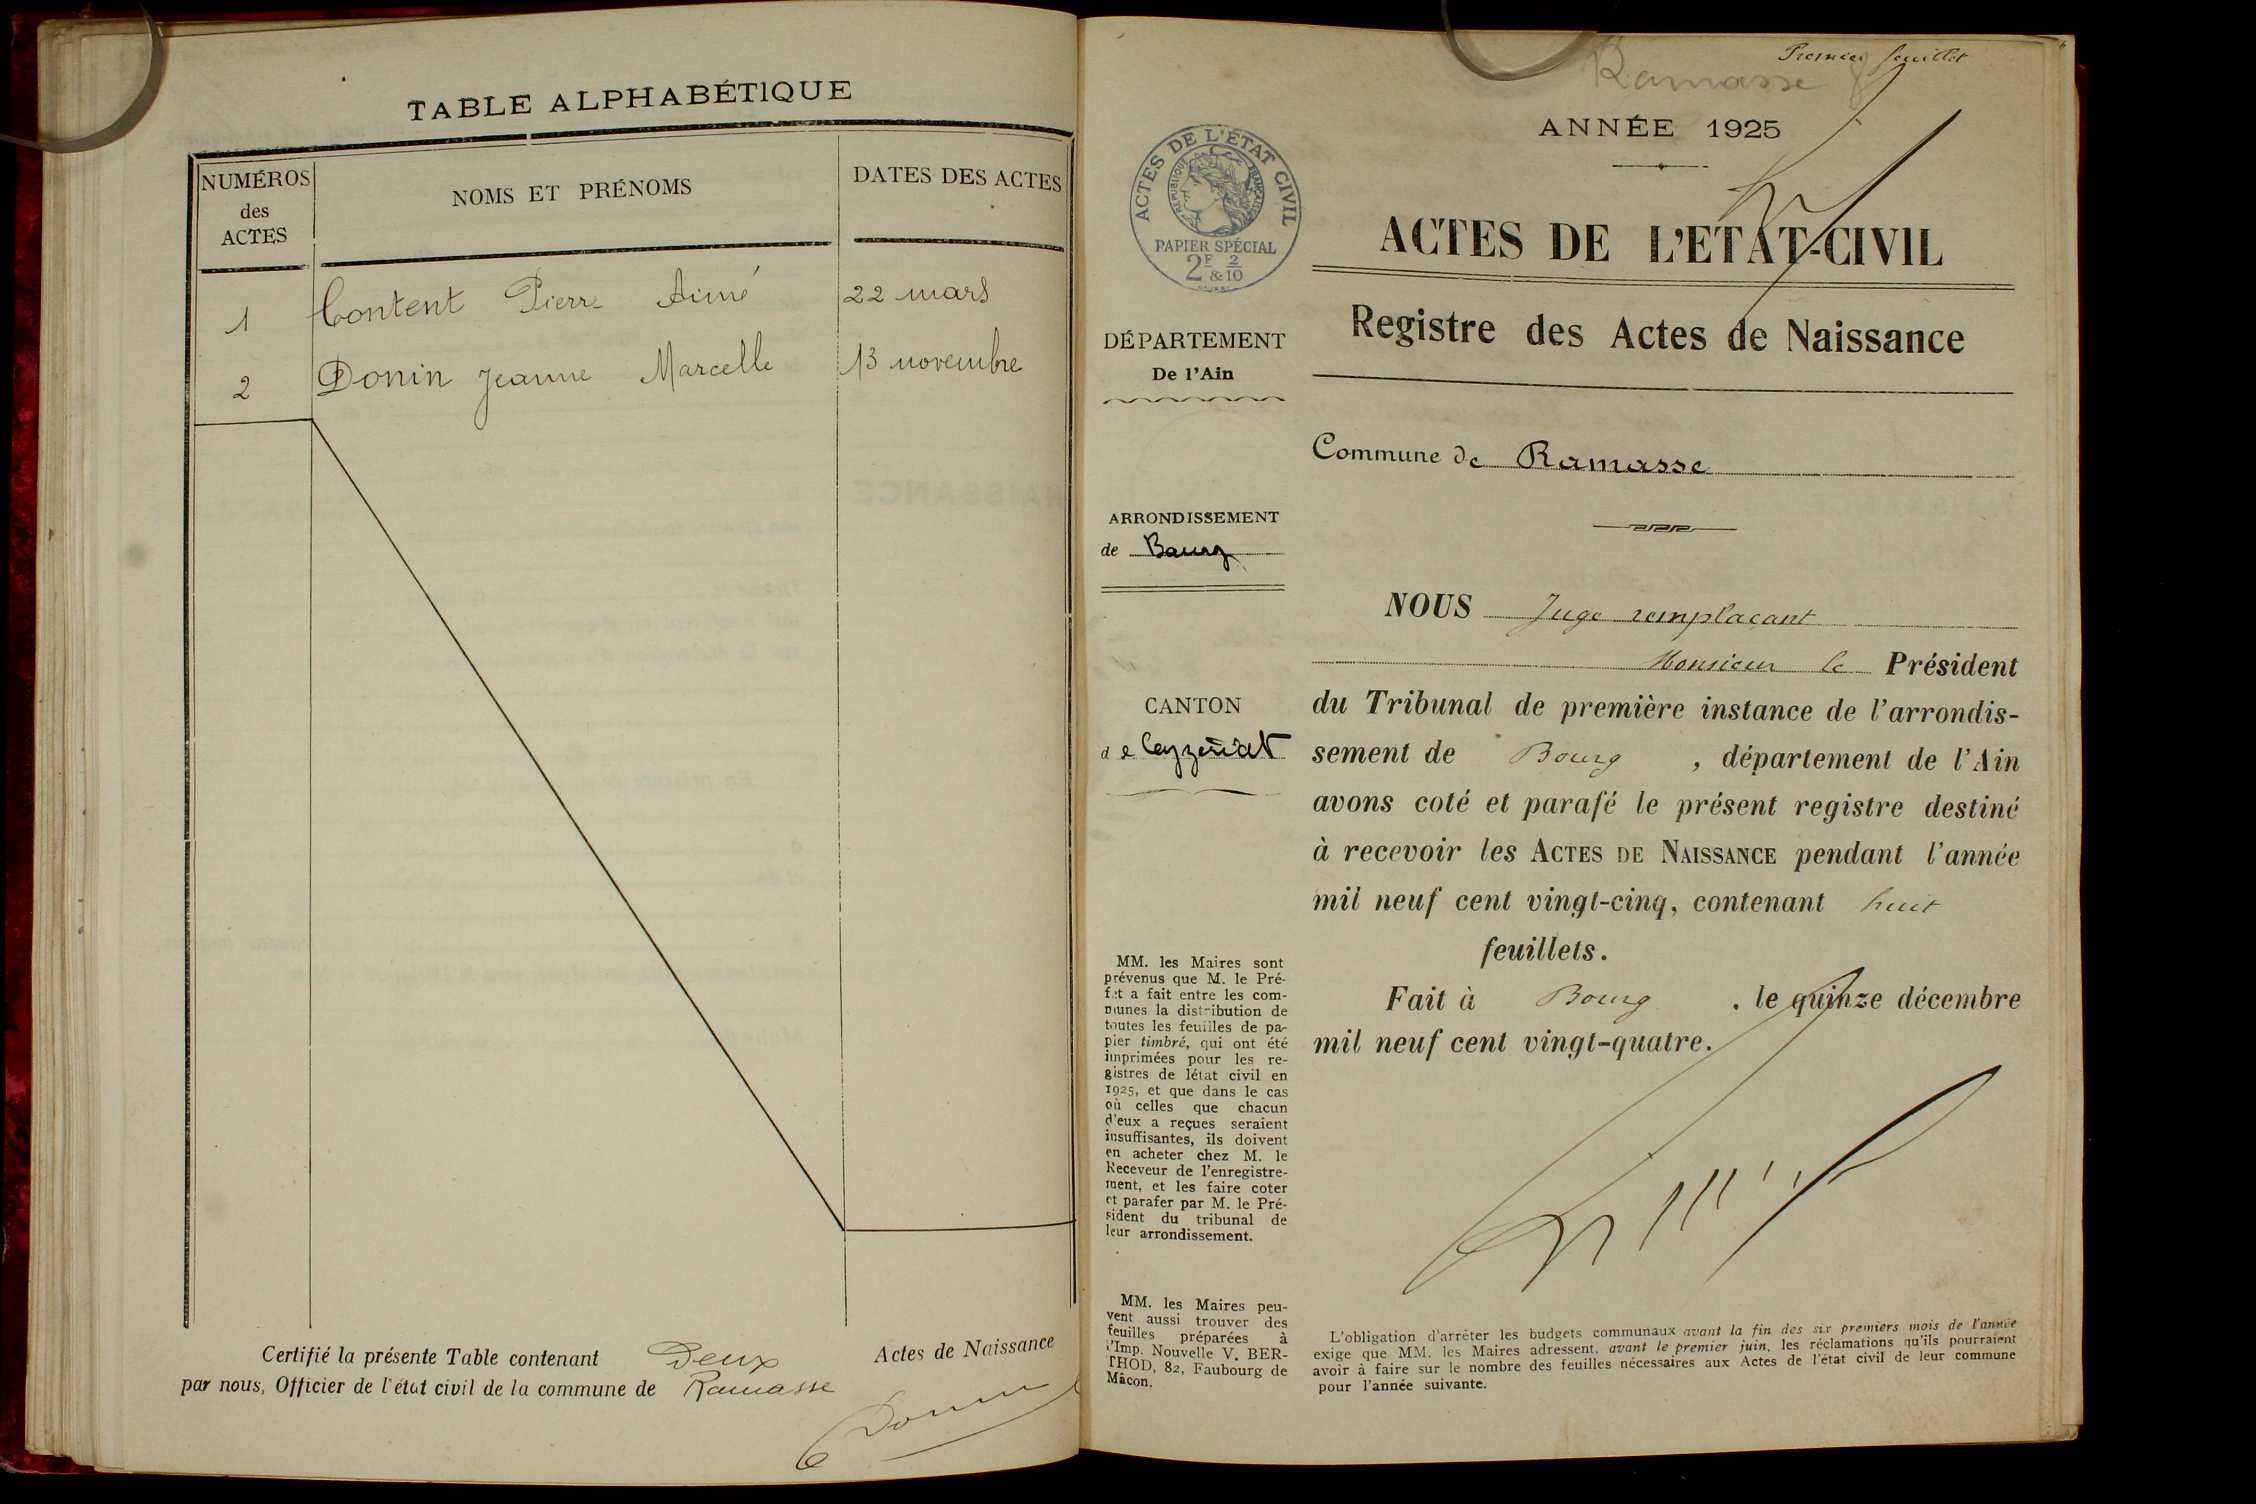 TABLE ALPHABÉTIQUE
NUMÉROS
des
ACTES
NOMS ET PRÉNOMS
DATES DES ACTES
1 Content Pierre Aimé 22 mars
2 Donin Jeanne Marcelle 13 novembre
Certifié la présente Table contenant Deux Actes de Naissance
par nous, Officier de l'état civil de la commune de Ramasse
Donin
Premier feuillet
Ramasse
ANNÉE 1925
ACTES DE L'ÉTAT CIVIL
RÉPUBLIQUE FRANÇAISE
PAPIER SPÉCIAL
2F & 2/10
ACTES DE L'ETAT-CIVIL
Registre des Actes de Naissance
DÉPARTEMENT
De l'Ain
Commune de Ramasse
ARRONDISSEMENT
de Bourg
CANTON
de Ceyzériat
NOUS Juge remplaçant
Monsieur le Président
du Tribunal de première instance de l'arrondis-
sement de Bourg, département de l'Ain
avons coté et parafé le présent registre destiné
à recevoir les ACTES DE NAISSANCE pendant l'année
mil neuf cent vingt-cinq, contenant huit
feuillets.
Fait à Bourg, le quinze décembre
mil neuf cent vingt-quatre.
MM. les Maires sont
prévenus que M. le Pré-
fet a fait entre les com-
munes la distribution de
toutes les feuilles de pa-
pier timbré, qui ont été
imprimées pour les re-
gistres de létat civil en
1925, et que dans le cas
où celles que chacun
d'eux a reçues seraient
insuffisantes, ils doivent
en acheter chez M. le
Receveur de l'enregistre-
ment, et les faire coter
et parafer par M. le Pré-
sident du tribunal de
leur arrondissement.
MM. les Maires peu-
vent aussi trouver des
feuilles préparées à
l'Imp. Nouvelle V. BER-
THOD, 82, Faubourg de
Mâcon.
L'obligation d'arrêter les budgets communaux avant la fin des six premiers mois de l'année
exige que MM. les Maires adressent, avant le premier juin, les réclamations qu'ils pourraient
avoir à faire sur le nombre des feuilles nécessaires aux Actes de l'état civil de leur commune
pour l'année suivante.